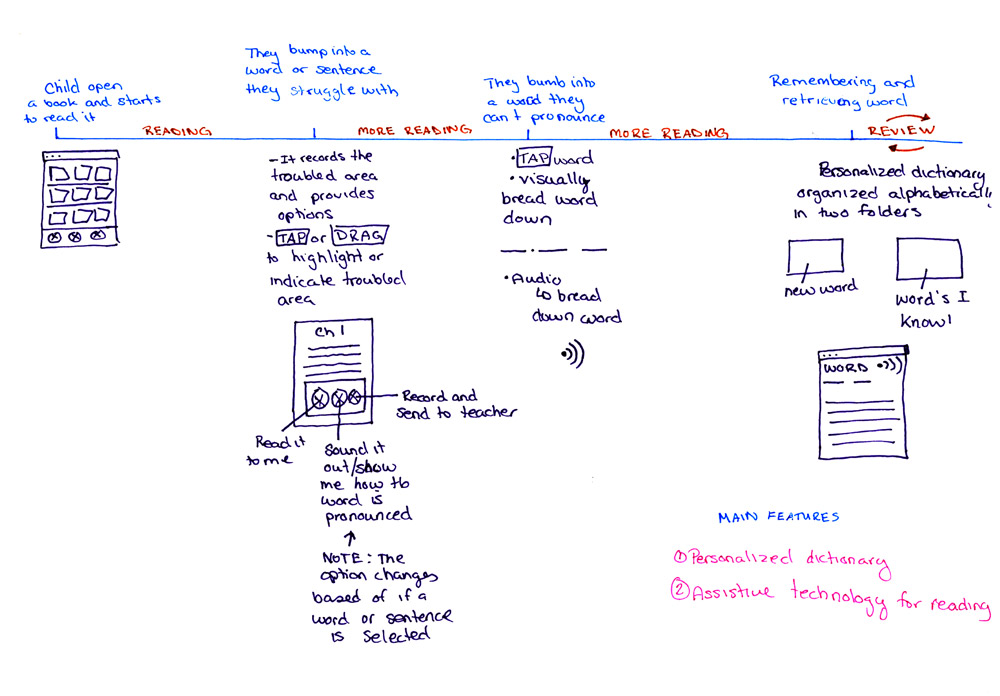 Child open
a book and starts
to read it
They bump into a
word or sentence
they struggle with
They bumb into
a word they
can't pronounce
Remembering and
retrieving word
READING
MORE READING
MORE READING
REVIEW
- It records the
troubled area
and provides
options
- TAP or DRAG
to highlight or
indicate troubled
area
Ch 1
Record and
Send to teacher
Read it
to me
Sound it
out/show
me how th
word is
pronounced
NOTE: The
option changes
based of if a
word or sentence
is selected
• TAP word
• visually
bread word
down
• Audio
↳ bread
down word
Personalized dictionary
organized alphabetically
in two folders
new word
word's I
know!
WORD
MAIN FEATURES
① Personalized dictionary
② Assistive technology for reading